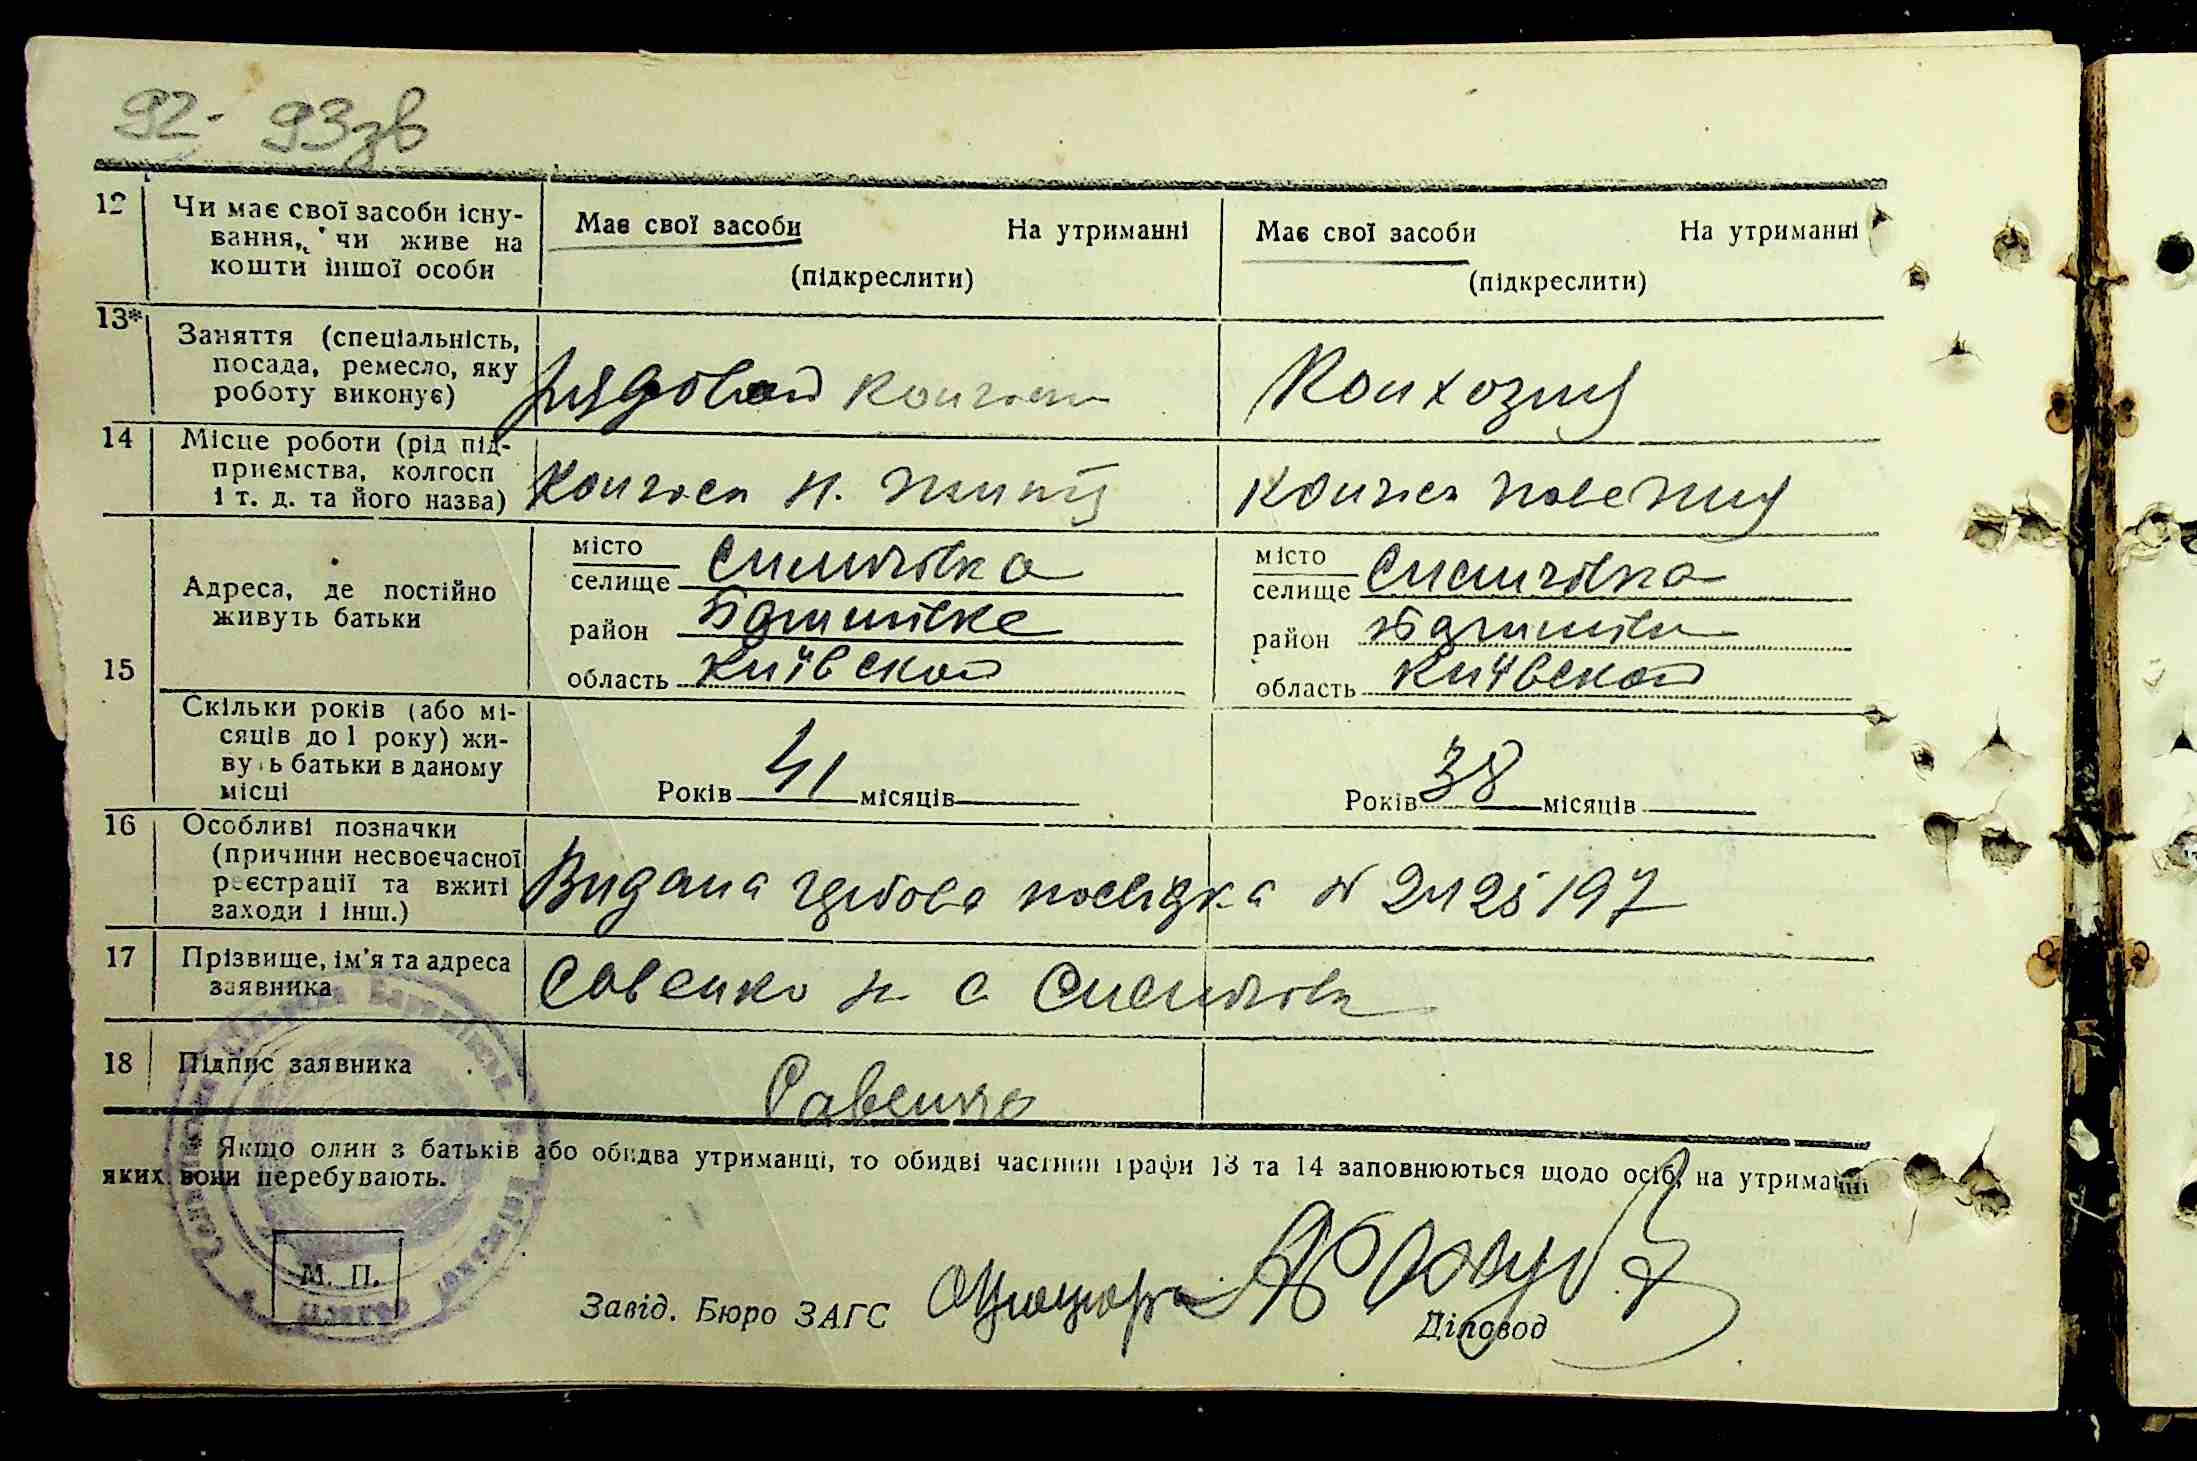 92- 93зв
12 Чи має свої засоби існу-
вання, чи живе на
кошти іншої особи
Має свої засоби На утриманні
(підкреслити)
Має свої засоби На утриманні
(підкреслити)
13* Заняття (спеціальність,
посада, ремесло, яку
роботу виконує)
Рядовой
Колхозниця
14 Місце роботи (рід під-
приємства, колгосп
і т. д. та його назва)
Колгосп
Колгосп
15 Адреса, де постійно
живуть батьки
місто
селище
район
область Київской
місто
селище
район
область Київской
Скільки років (або мі-
сяців до 1 року) жи-
вуть батьки в даному
місці
Років 41 місяців
Років 38 місяців
16 Особливі позначки
(причини несвоєчасної
реєстрації та вжиті
заходи і інш.)
Видана гербова посвідка №
17 Прізвище, ім'я та адреса
заявника
Савенко с
18 Підпис заявника
Савенко
* Якщо один з батьків або обидва утриманці, то обидві частини графи 13 та 14 заповнюються щодо осіб, на утриманні
яких вони перебувають.
М. П.
Завід. Бюро ЗАГС
Діловод